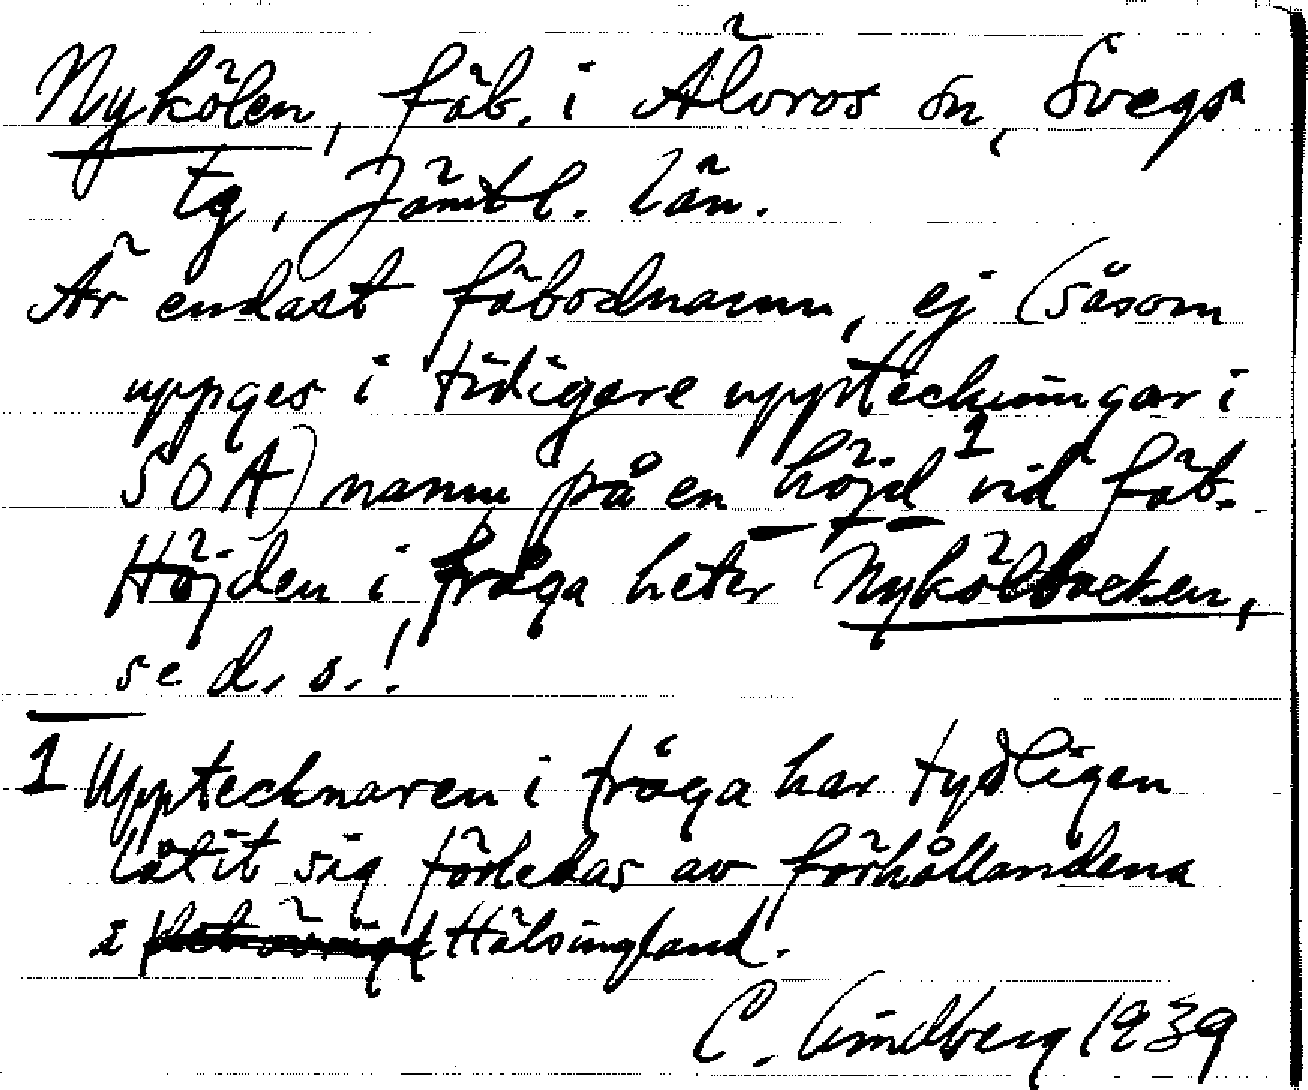 Nykölen, fäb. i Älvros sn, Svegs
tg, Jämtl. län.
Är endast fäbodnamn, ej (såsom
uppges i tidigare uppteckningar i
SOA) namn på en höjd¹ vid fäb.
Höjden i fråga heter Nykölbacken,
se d. o.!
1 Upptecknaren i fråga har tydligen
låtit sig förledas av förhållandena
i Hälsingland.
C. Lindberg 1939